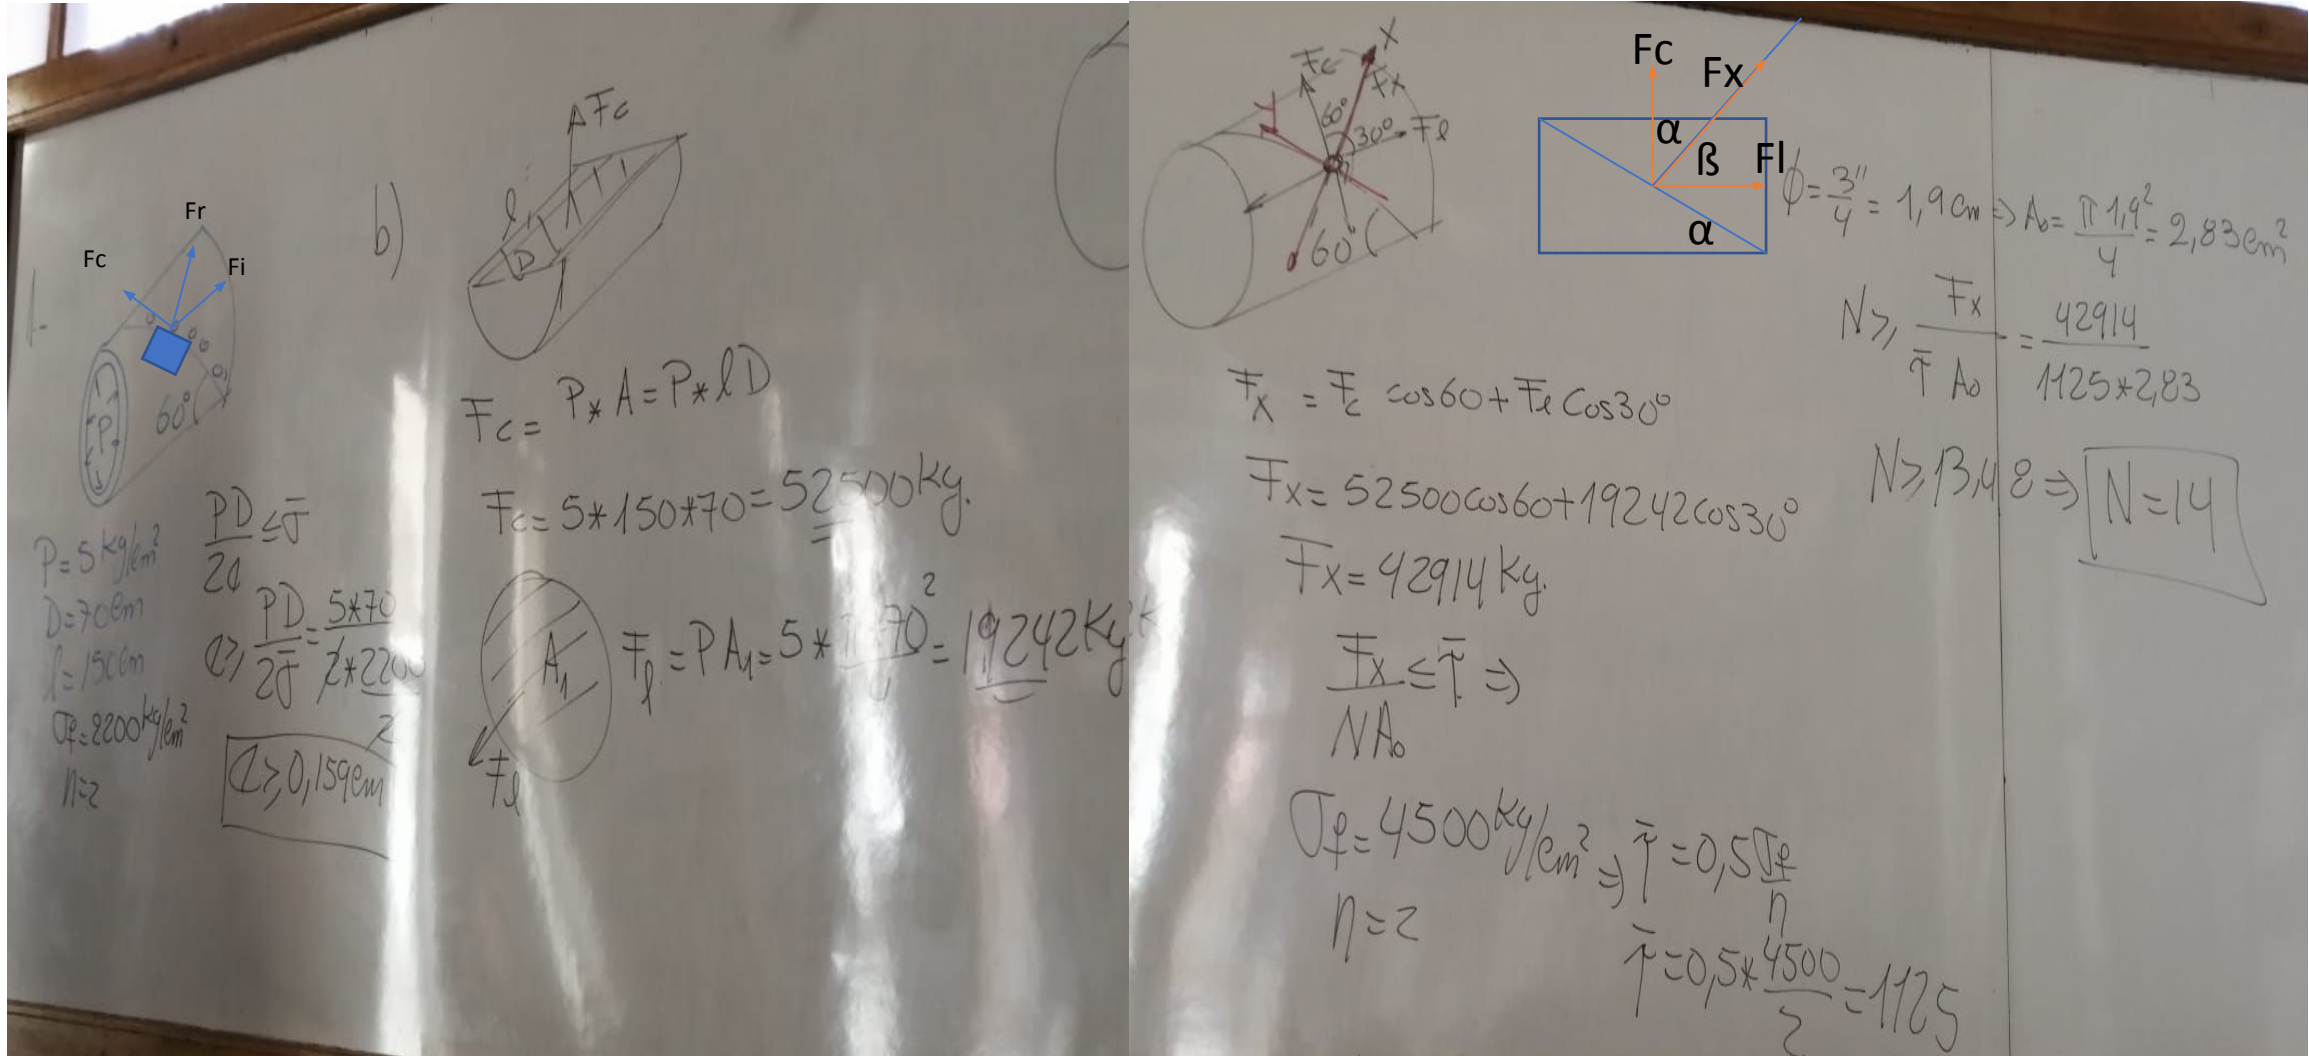 1.
Fr
Fc
Fi
P
60°
P = 5 kg/cm²
D = 70 cm
l = 150 cm
σf = 2200 kg/cm²
n = 2
PD/2e ≤ σ̄
e ≥ PD/2σ̄ = 5*70/2*2200/2
e ≥ 0,159 cm
b)
Fc
l
D
Fc = P * A = P * l D
Fc = 5*150*70 = 52500 kg.
A₁
Fl
Fl = P A₁ = 5 * π 70²/4 = 19242 kg
Fc
X
Fx
Y
60°
30°
Fl
60°
Fc
Fx
α
ß
Fl
α
Fx = Fc cos60 + Fl Cos30°
Fx = 52500cos60 + 19242cos30°
Fx = 42914 kg.
Fx/NA₀ ≤ τ̄ ⇒
σf = 4500 kg/cm² ⇒ τ̄ = 0,5 σf/n
n = 2
τ̄ = 0,5 * 4500/2 = 1125
ϕ = 3"/4 = 1,9 cm ⇒ A₀ = π 1,9²/4 = 2,83 cm²
N ≥ Fx/τ̄ A₀ = 42914/1125*2,83
N ≥ 13,48 ⇒ N = 14